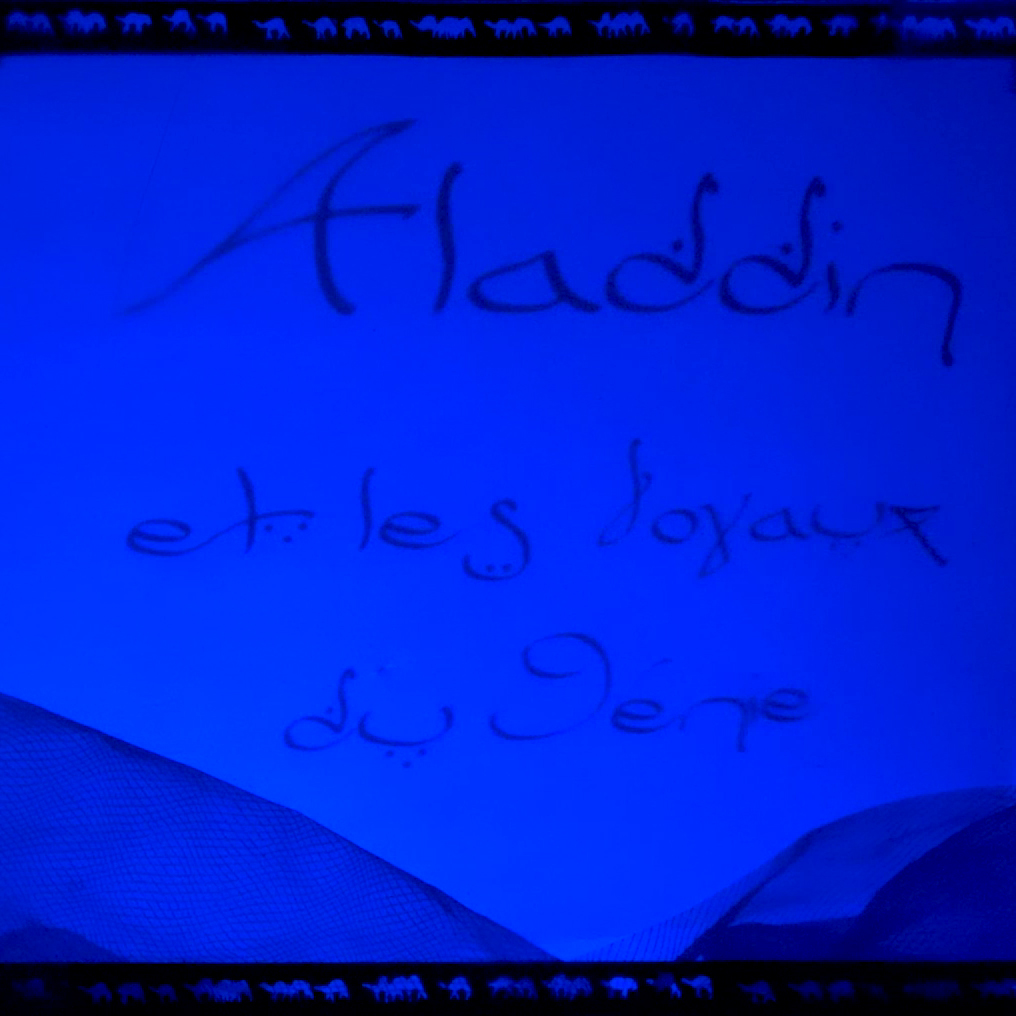 Aladdin
et les Joyaux
du Génie